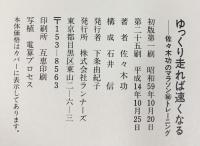 ゆっくり走れば速くなる
佐々木功のマラソン㊙トレーニング
初版第一刷 昭和59年10月20日
第二十五刷 平成14年10月25日
著者 佐々木功
構成 石井信
発行者 下条由紀子
発行所 株式会社ランナーズ
東京都目黒区東山二-六-十三
〒153-8563
印刷所 互恵印刷
写植 電算プロセス
本体価格はカバーに表示してあります。